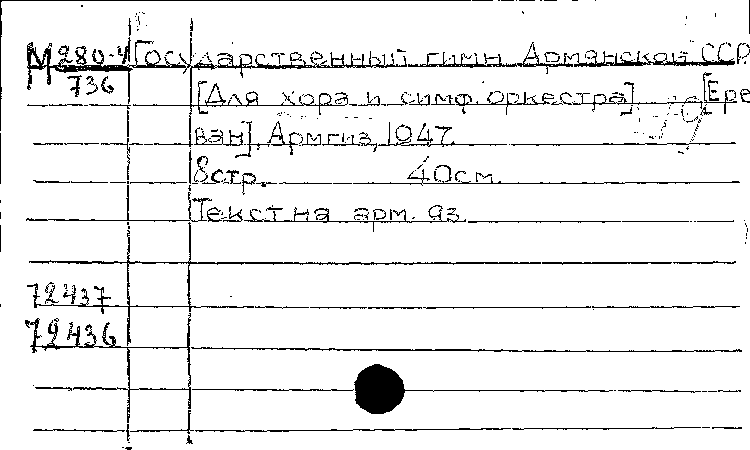 М 280-4 Государственный гимн Армянской ССР
736 [Для хора и симф. оркестра] [Ере
ван], Армгиз, 1947.
8стр. 40см.
Текст на арм. яз.
72437
72436